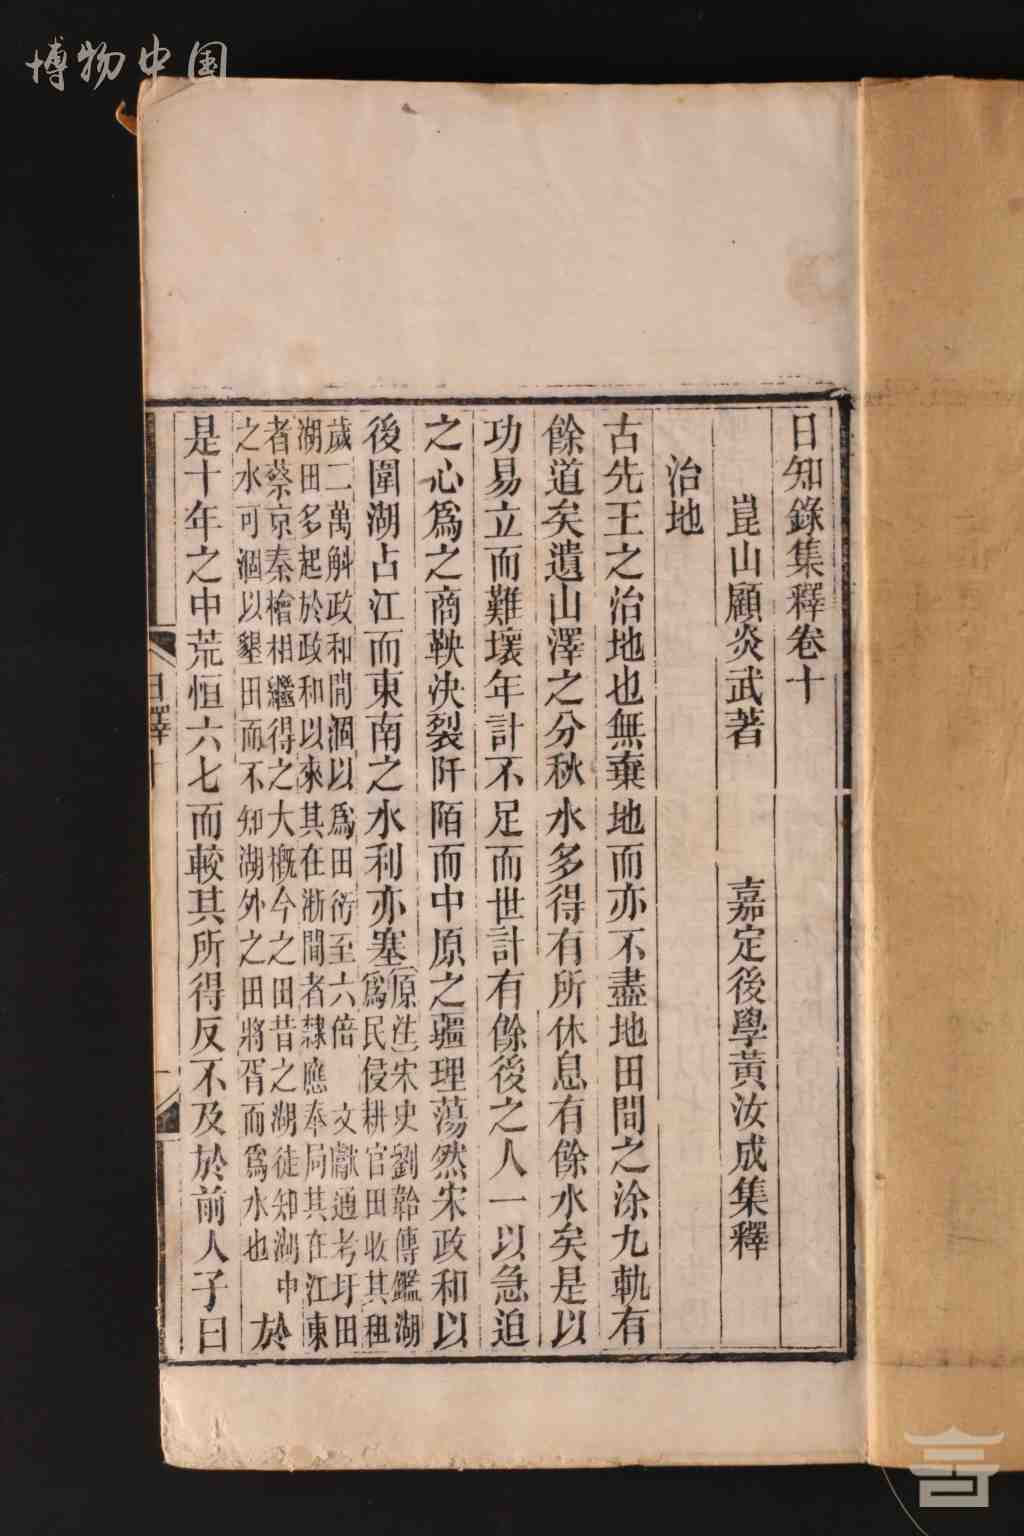 博物中国
日知錄集釋卷十
崑山顧炎武著　嘉定後學黃汝成集釋
治地
古先王之治地也無棄地而亦不盡地田間之涂九軌有
餘道矣遺山澤之分秋水多得有所休息有餘水矣是以
功易立而難壞年計不足而世計有餘後之人一以急迫
之心爲之商鞅決裂阡陌而中原之疆理蕩然宋政和以
後圍湖占江而東南之水利亦塞
原注宋史劉韐傳鑑湖
爲民侵耕官田收其租
歲二萬斛政和間涸以爲田衍至六倍　文獻通考圩田
湖田多起於政和以來其在浙間者隸應奉局其在江東
者蔡京秦檜相繼得之大概今之田昔之湖徒知湖中
之水可涸以墾田而不知湖外之田將胥而爲水也
於
是十年之中荒恒六七而較其所得反不及於前人子曰
日釋十